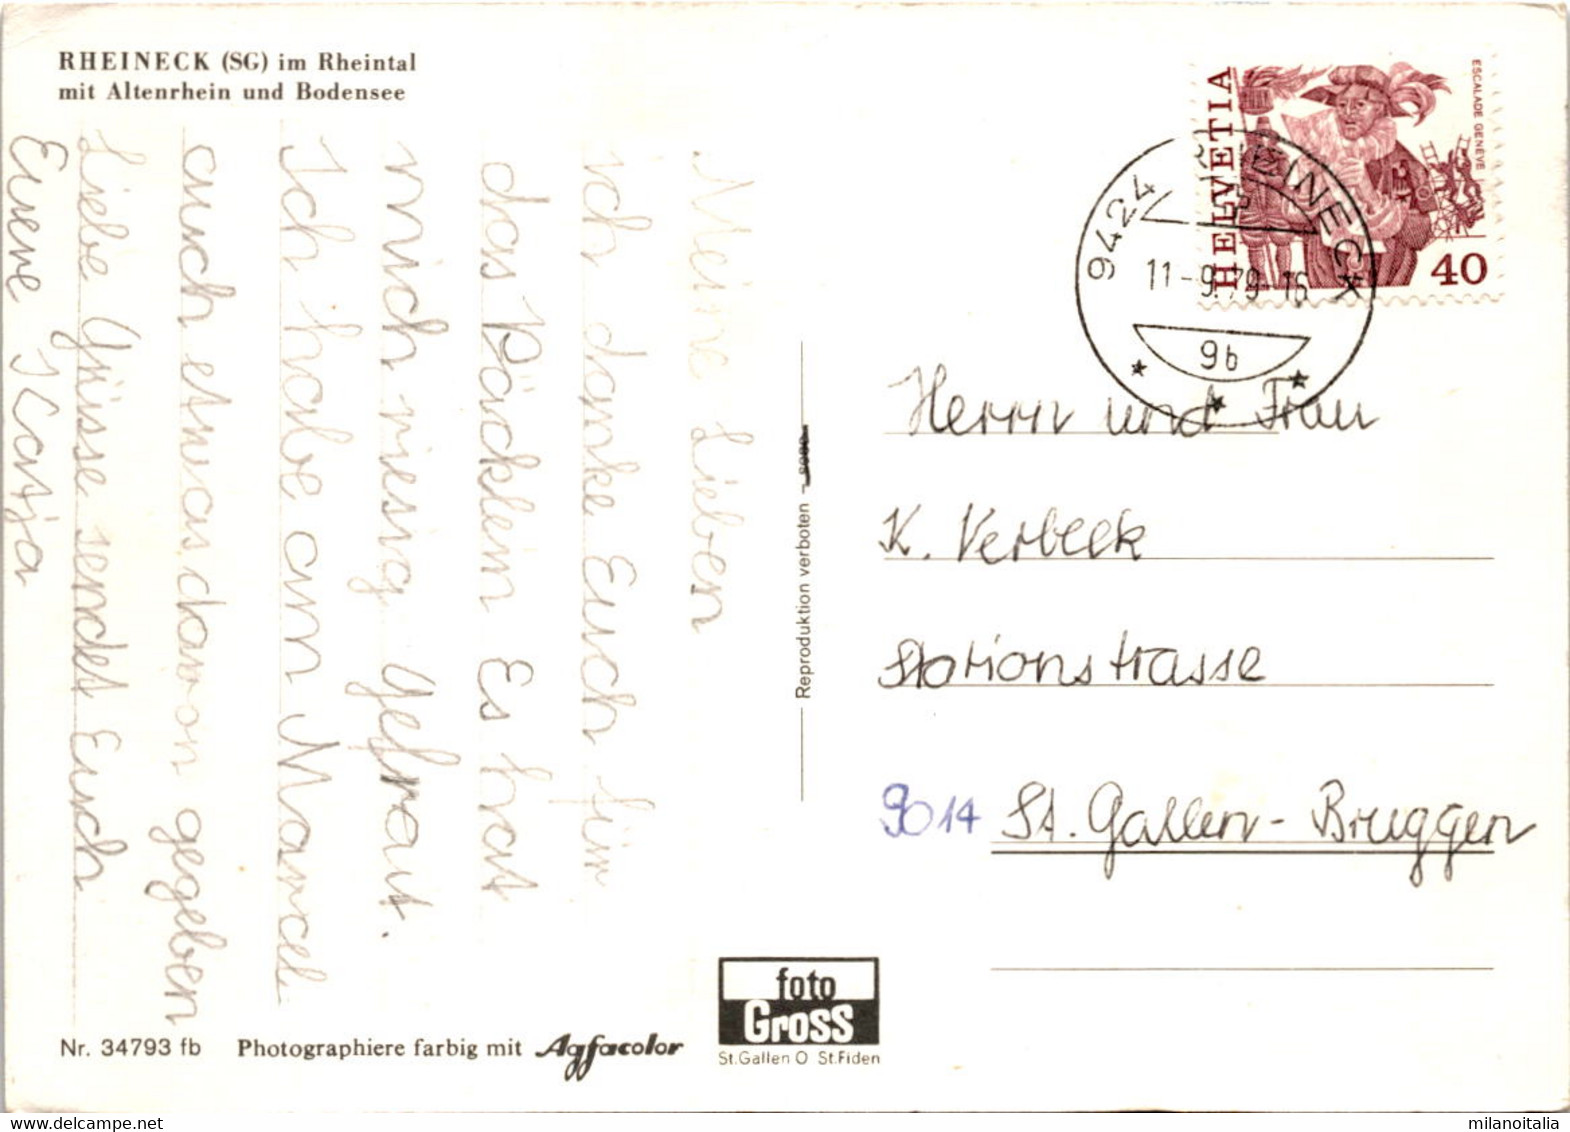 RHEINECK (SG) im Rheintal
mit Altenrhein und Bodensee
Meine Lieben
ich danke Euch für
das Päcklein Es hat
mich riesig gefreut.
Ich habe am Marcel
auch etwas davon gegeben
Liebe Grüsse sendet Euch
Euere Katja
Reproduktion verboten
HELVETIA
ESCALADE GENEVE
40
9424 RHEINECK
11-9.79-16
9b
Herrn und Frau
K. Verbeek
Stationstrasse
9014 St. Gallen-Bruggen
Nr. 34793 fb
Photographiere farbig mit Agfacolor
foto
Gross
St.Gallen O St.Fiden
milanoitalia